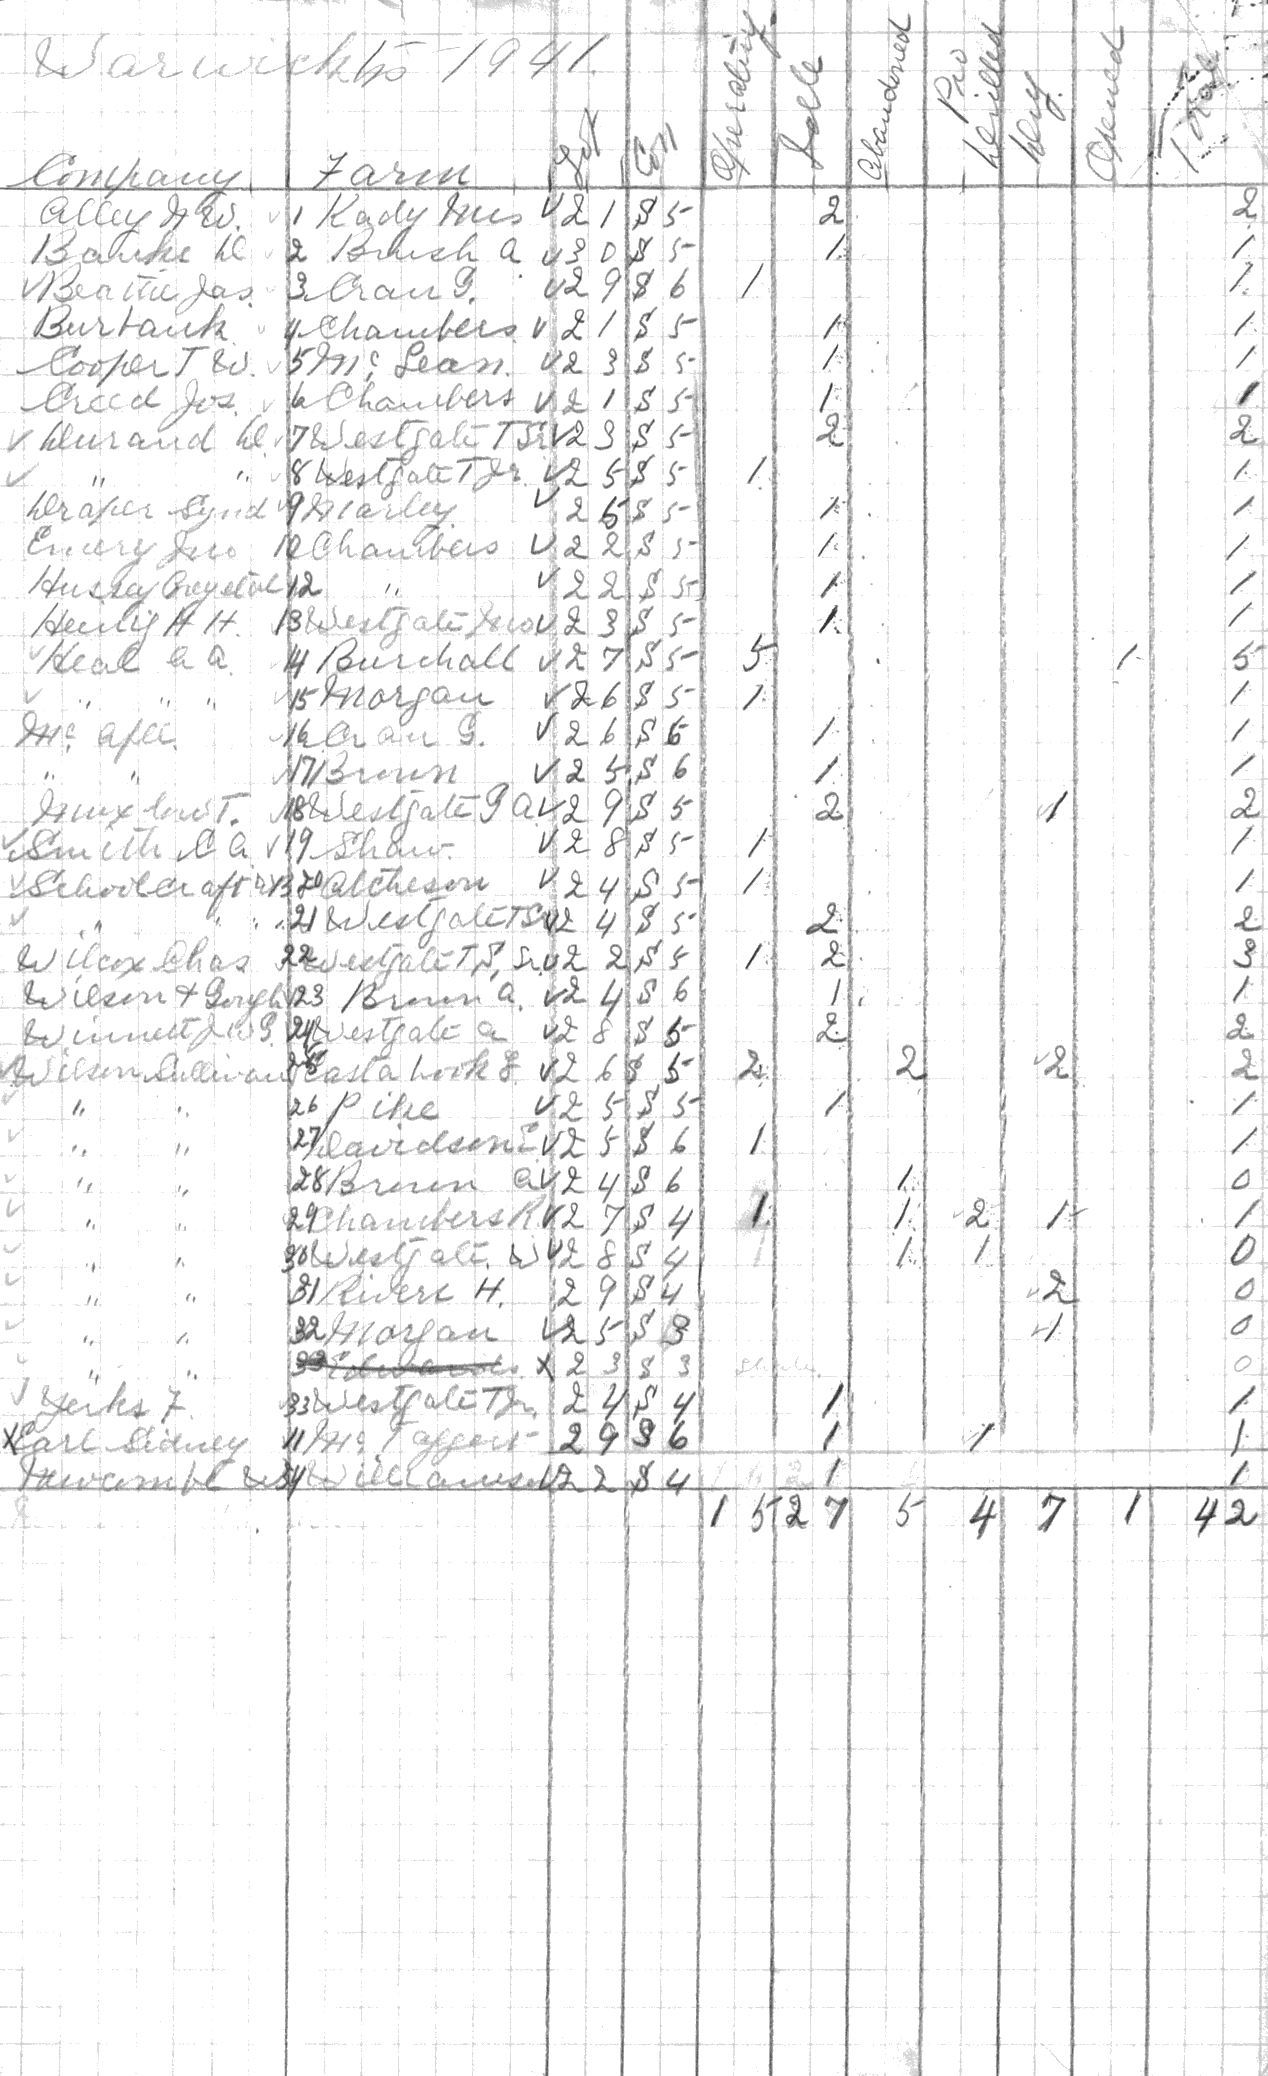 Warwick tp 1941.
Company Farm Lot Con Operating Idle Abandoned Pro Drilled Dry. Opened Total
Alley W. 1 Kady Mrs √ 21 S 5 2 2
D 2 Brush A √ 30 S 5 1 1
√ Beattie Jas. 3 Cran G. √ 29 S 6 1 1
Burbank √ 4 Chambers √ 21 S 5 1 1
Cooper T W. √ 5 Mc Lean. √ 23 S 5 1 1
Creed Jos. 6 Chambers √ 21 S 5 1 1
√ Durand D. 7 Westgate T Sr √ 23 S 5 2 2
√ " " 8 Westgate T Jr. √ 25 S 5 1 1
Draper Synd 9 Marley √ 25 S 5 1 1
Emery Jno 10 Chambers √ 22 S 5 1 1
Hussey Crystal 12 " √ 22 S 5 1 1
H H. 13 Westgate Jno √ 23 S 5 1 1
√ Heal A A. 14 Burchall √ 27 S 5 5 1 5
√ " " " 15 Morgan √ 26 S 5 1 1
Mc Afee. √ 16 Cran G. √ 26 S 6 1 1
" " √ 17 Brown √ 25 S 6 1 1
T. 18 Westgate G A. √ 29 S 5 2 √1 2
√ Smith C A √ 19 Shaw. √ 28 S 5 1 1
√ Schoolcraft 20 Atcheson √ 24 S 5 1 1
√ " " " 21 Westgate T Sr √ 24 S 5 2 2
Wilcox Chas 22 Westgate T, S, Sr. √ 22 S 5 1 2 3
Wilson + Gough √ 23 Brown A. √ 24 S 6 1 1
Winnett G. 24 Westgate A √ 28 S 5 2 2
√ Wilson Sullivan 25 Easta brook F. √ 26 S 5 2 2 √2 2
√ " " 26 Pike √ 25 S 5 1 1
√ " " 27 Davidson E √ 25 S 6 1 1
√ " " 28 Brown A √ 24 S 6 1 0
√ " " 29 Chambers R √ 27 S 4 1 1 √2 1 1
√ " " 30 Westgate. W √ 28 S 4 1 1 0
√ " " 31 Rivers H. 29 S 4 √2 0
√ " " 32 Morgan √ 25 S 3 √1 0
√ " " 33 Edwards X 23 S 3 0
√ Jerks F. √ 33 Westgate T Jr. 24 S 4 1 1
X Earl Sidney 11 Mc Taggert 29 S 6 1 1 1
Newcombe W 34 Williamson √ 22 S 4 1 1
15 27 5 4 7 1 42